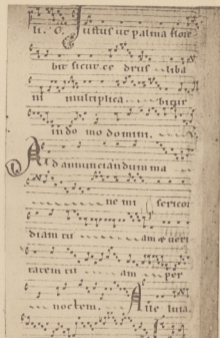 li. G. Iustus ut palma flore
bit sicut ce drus liba
ni multiplica bitur
in do mo domini.
Ad annunciandum ma
ne mi sericor
diam tu am et veri
tatem tu am per
noctem. Alle luia.